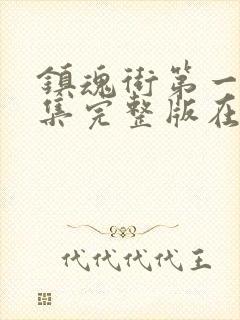 鎮魂街第一
集完整版在
代代代代王